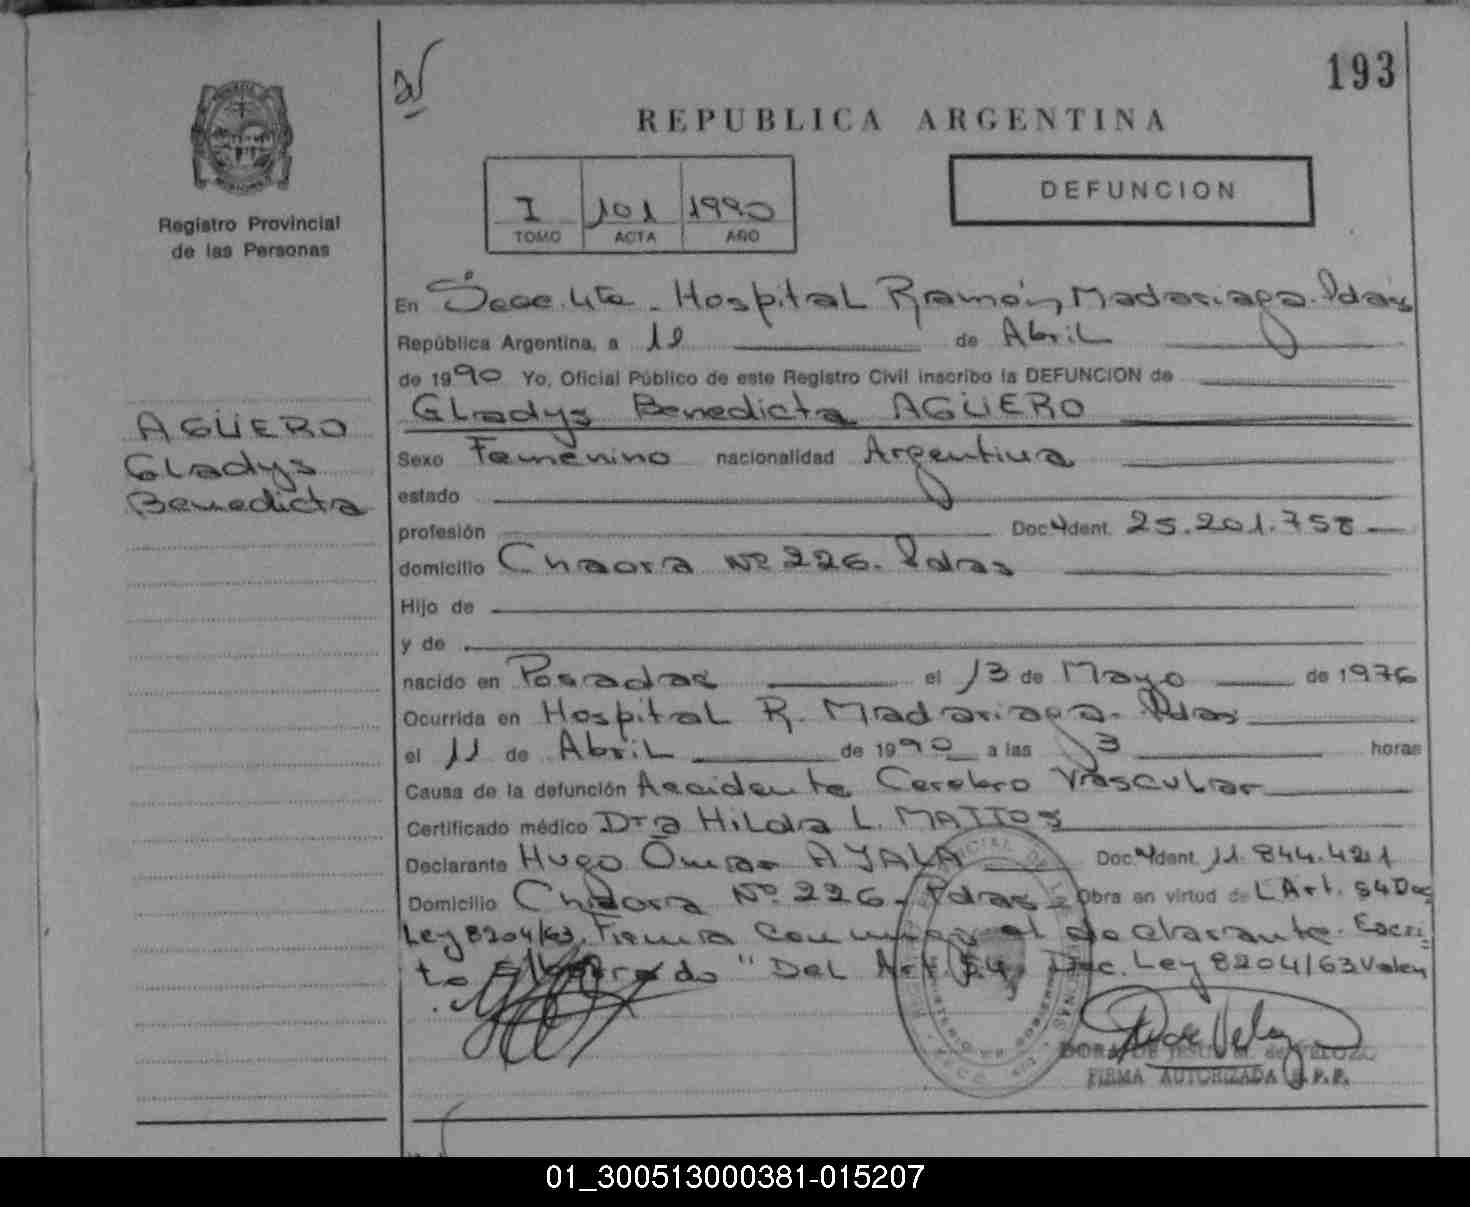 193
REPUBLICA ARGENTINA
Registro Provincial
de las Personas
I 101 1990
TOMO ACTA AÑO
DEFUNCION
En Secc. 4ta - Hospital Ramón Madariaga. Pdas
República Argentina, a 11 de Abril
de 1990 Yo, Oficial Público de este Registro Civil inscribo la DEFUNCION de
Gladys Benedicta AGÜERO
AGÜERO
Gladys
Benedicta
Sexo Femenino nacionalidad Argentina
estado
profesión Doc. Ident. 25.201.758
domicilio Nº 226. Pdas
Hijo de
y de
nacido en Posadas el 13 de Mayo de 1976
Ocurrida en Hospital R. Madariaga. Pdas
el 11 de Abril de 1990 a las 3 horas
Causa de la defunción Accidente Cerebro Vascular
Certificado médico Dra Hilda L. MATTOS
Declarante Hugo Omar AYALA Doc. Ident. 11.844.421
Domicilio Nº 226. Pdas - Obra en virtud del Art. 54 Dec
Ley 8204/63. Firma conmigo el declarante. Escri-
to "Del Art. 54 Dec. Ley 8204/63 Valen
DORA DE JESUS M. de VELOZO
FIRMA AUTORIZADA R.P.P.
01_300513000381-015207